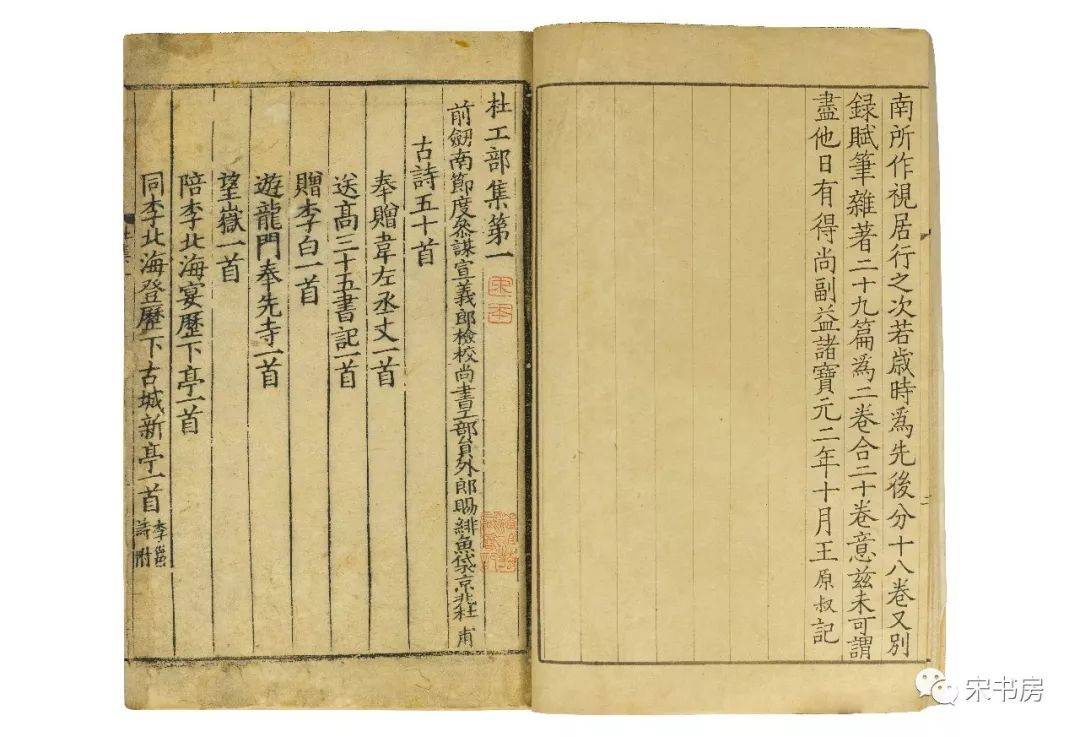 南所作視居行之次若歲時爲先後分十八卷又别
録賦筆雜著二十九篇爲二卷合二十卷意兹未可謂
盡他日有得尚副益諸寶元二年十月王原叔記
杜工部集第一
前劒南節度叅謀宣義郎檢校尚書工部員外郎賜緋魚袋京兆杜甫
古詩五十首
奉贈韋左丞丈一首
送高三十五書記一首
贈李白一首
遊龍門奉先寺一首
望嶽一首
陪李北海宴歷下亭一首
同李北海登歷下古城新亭一首 李邕詩附
宋书房